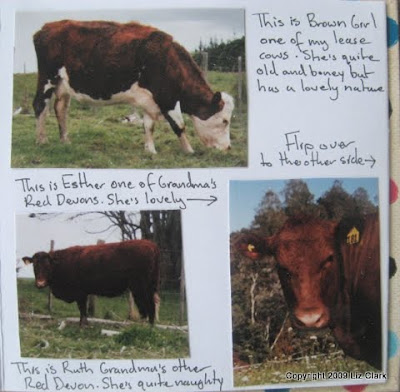 This is Brown Girl
one of my lease
cows. She's quite
old and boney but
has a lovely nature
Flip over
to the other side→
This is Esther one of Grandma's
Red Devons. She's lovely→
This is Ruth Grandma's other
Red Devon. She's quite naughty
Copyright 2009 Liz Clark